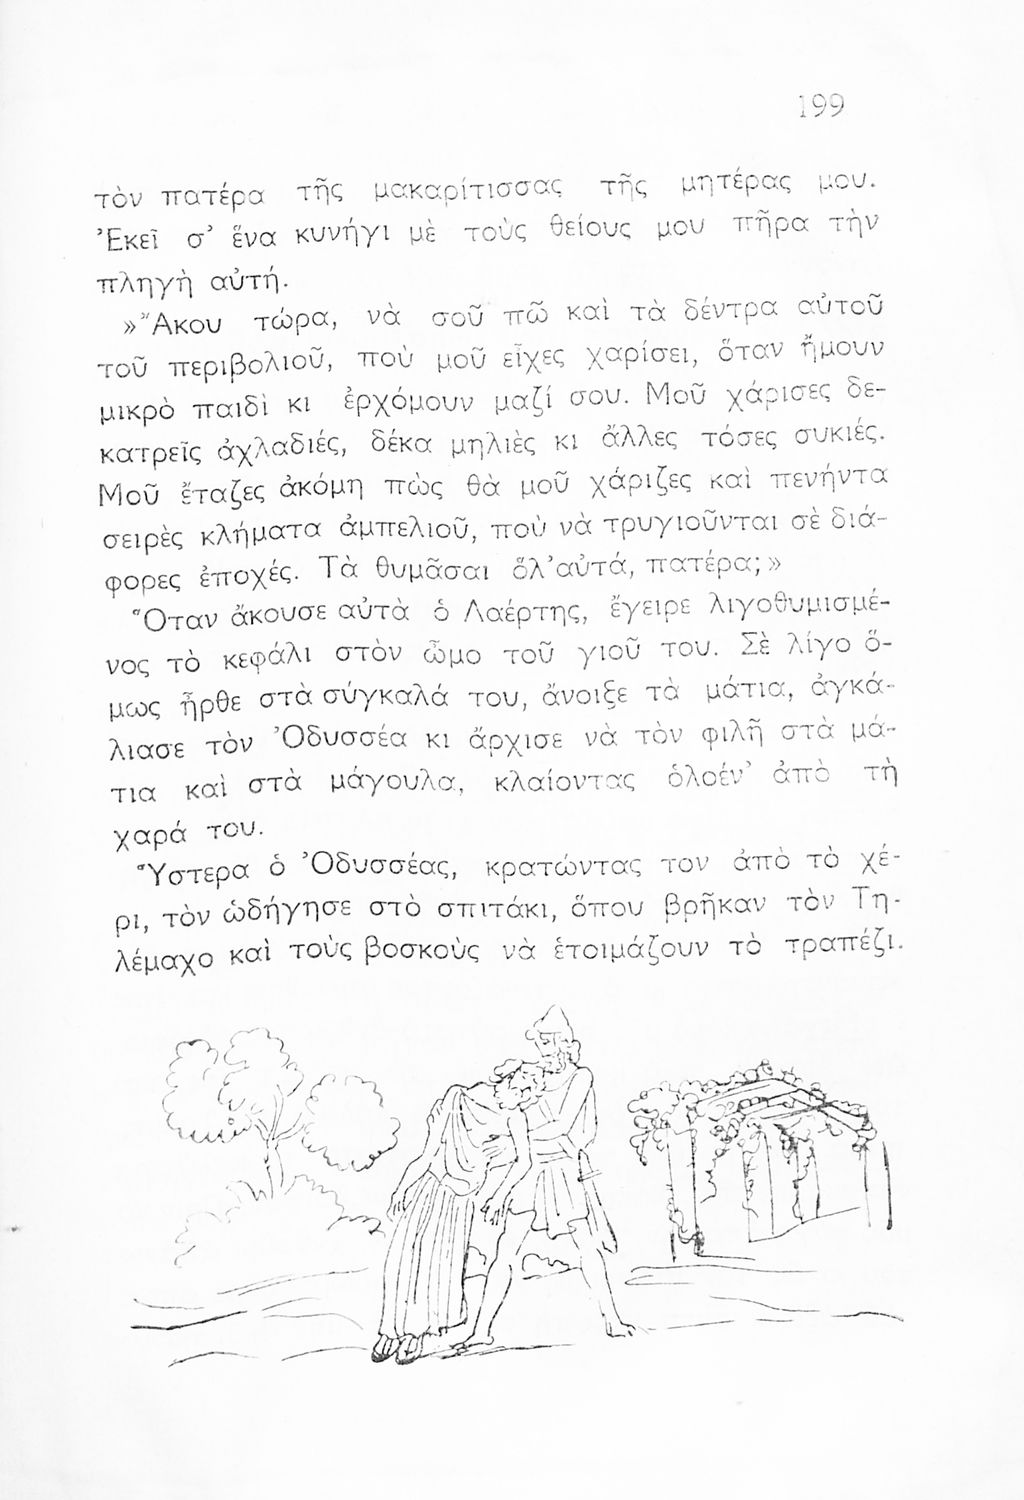 199
τὸν πατέρα τῆς μακαρίτισσας τῆς μητέρας μου.
Ἐκεῖ σ’ ἕνα κυνήγι μὲ τοὺς θείους μου πῆρα τὴν
πληγὴ αὐτή.
»Ἄκου τώρα, νὰ σοῦ πῶ καὶ τὰ δέντρα αὐτοῦ
τοῦ περιβολιοῦ, ποὺ μοῦ εἶχες χαρίσει, ὅταν ἤμουν
μικρὸ παιδὶ κι ἐρχόμουν μαζί σου. Μοῦ χάρισες δε-
κατρεῖς ἀχλαδιές, δέκα μηλιὲς κι ἄλλες τόσες συκιές.
Μοῦ ἔταζες ἀκόμη πὼς θὰ μοῦ χάριζες καὶ πενήντα
σειρὲς κλήματα ἀμπελιοῦ, ποὺ νὰ τρυγιοῦνται σὲ διά-
φορες ἐποχές. Τὰ θυμᾶσαι ὅλ’αὐτά, πατέρα;»
Ὅταν ἄκουσε αὐτὰ ὁ Λαέρτης, ἔγειρε λιγοθυμισμέ-
νος τὸ κεφάλι στὸν ὦμο τοῦ γιοῦ του. Σὲ λίγο ὅ-
μως ἦρθε στὰ σύγκαλά του, ἄνοιξε τὰ μάτια, ἀγκά-
λιασε τὸν Ὀδυσσέα κι ἄρχισε νὰ τὸν φιλῆ στὰ μά-
τια καὶ στὰ μάγουλα, κλαίοντας ὁλοέν’ ἀπὸ τὴ
χαρά του.
Ὕστερα ὁ Ὀδυσσέας, κρατώντας τον ἀπὸ τὸ χέ-
ρι, τὸν ὡδήγησε στὸ σπιτάκι, ὅπου βρῆκαν τὸν Τη-
λέμαχο καὶ τοὺς βοσκοὺς νὰ ἑτοιμάζουν τὸ τραπέζι.